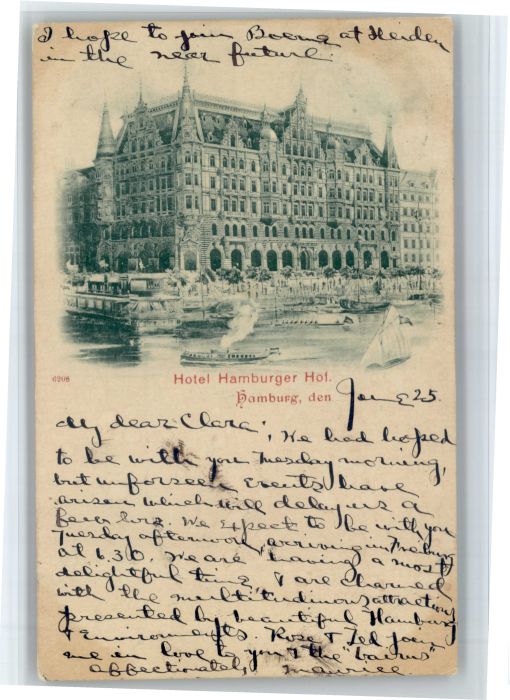 I hope to join Boerne at Heiden
in the near future.
6208
Hotel Hamburger Hof.
Hamburg, den June 25.
My dear Clara; We had hoped
to be with you Tuesday morning,
but unforseen events have
arisen which will delay us a
few hors. We expect to be with you
Tuesday afternoon, arriving in
at 6.30. We are having a most
delightful time, & are charmed
with the multitudinous attractions
presented by beautiful Hamburg
& Environments. Rose & Ted join
me in love to you & the "bairns"
affectionately, Maurice.